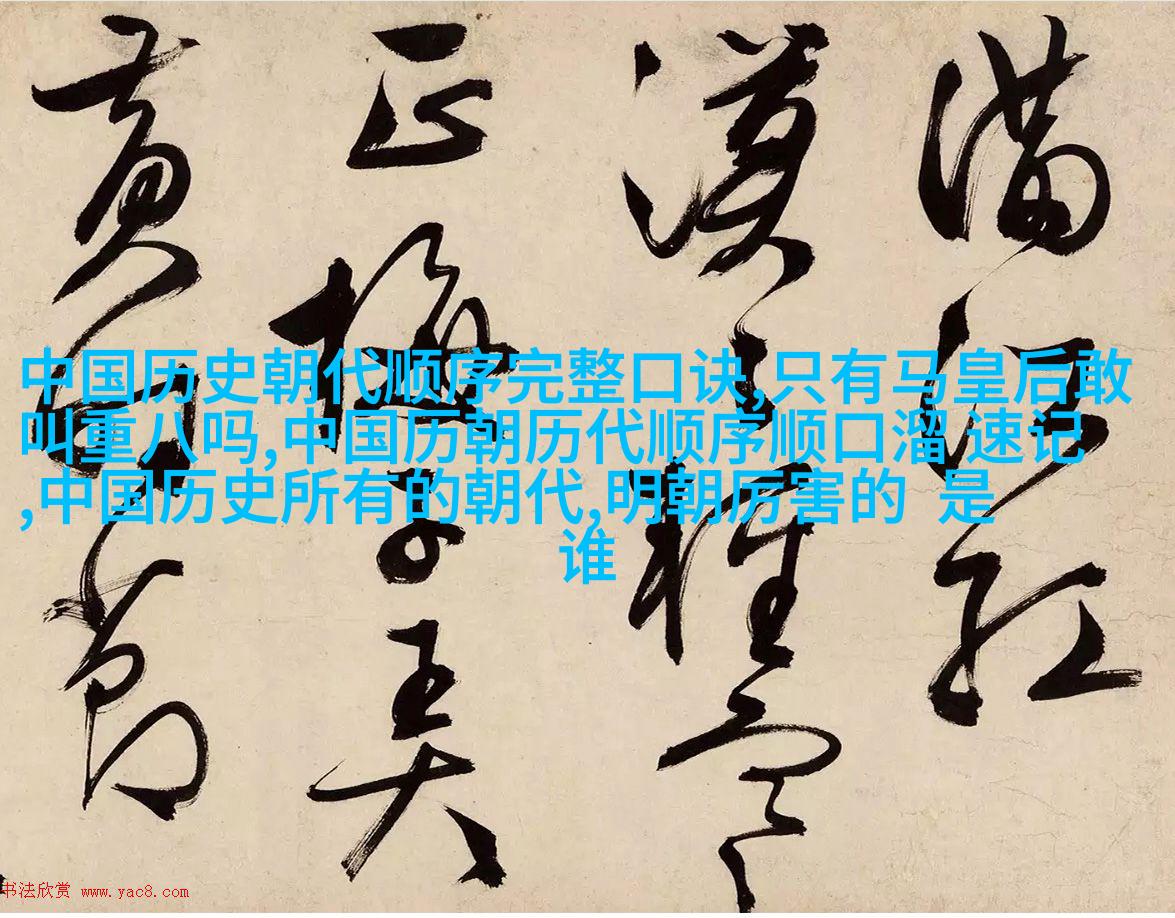 滿江紅
漠漠輕陰
正梅子弄
黃時節
中国历史朝代顺序完整口诀,只有马皇后敢
叫重八吗,中国历朝历代顺序顺口溜 速记
,中国历史所有的朝代,明朝厉害的 是
谁
书法欣赏 www.yac8.com